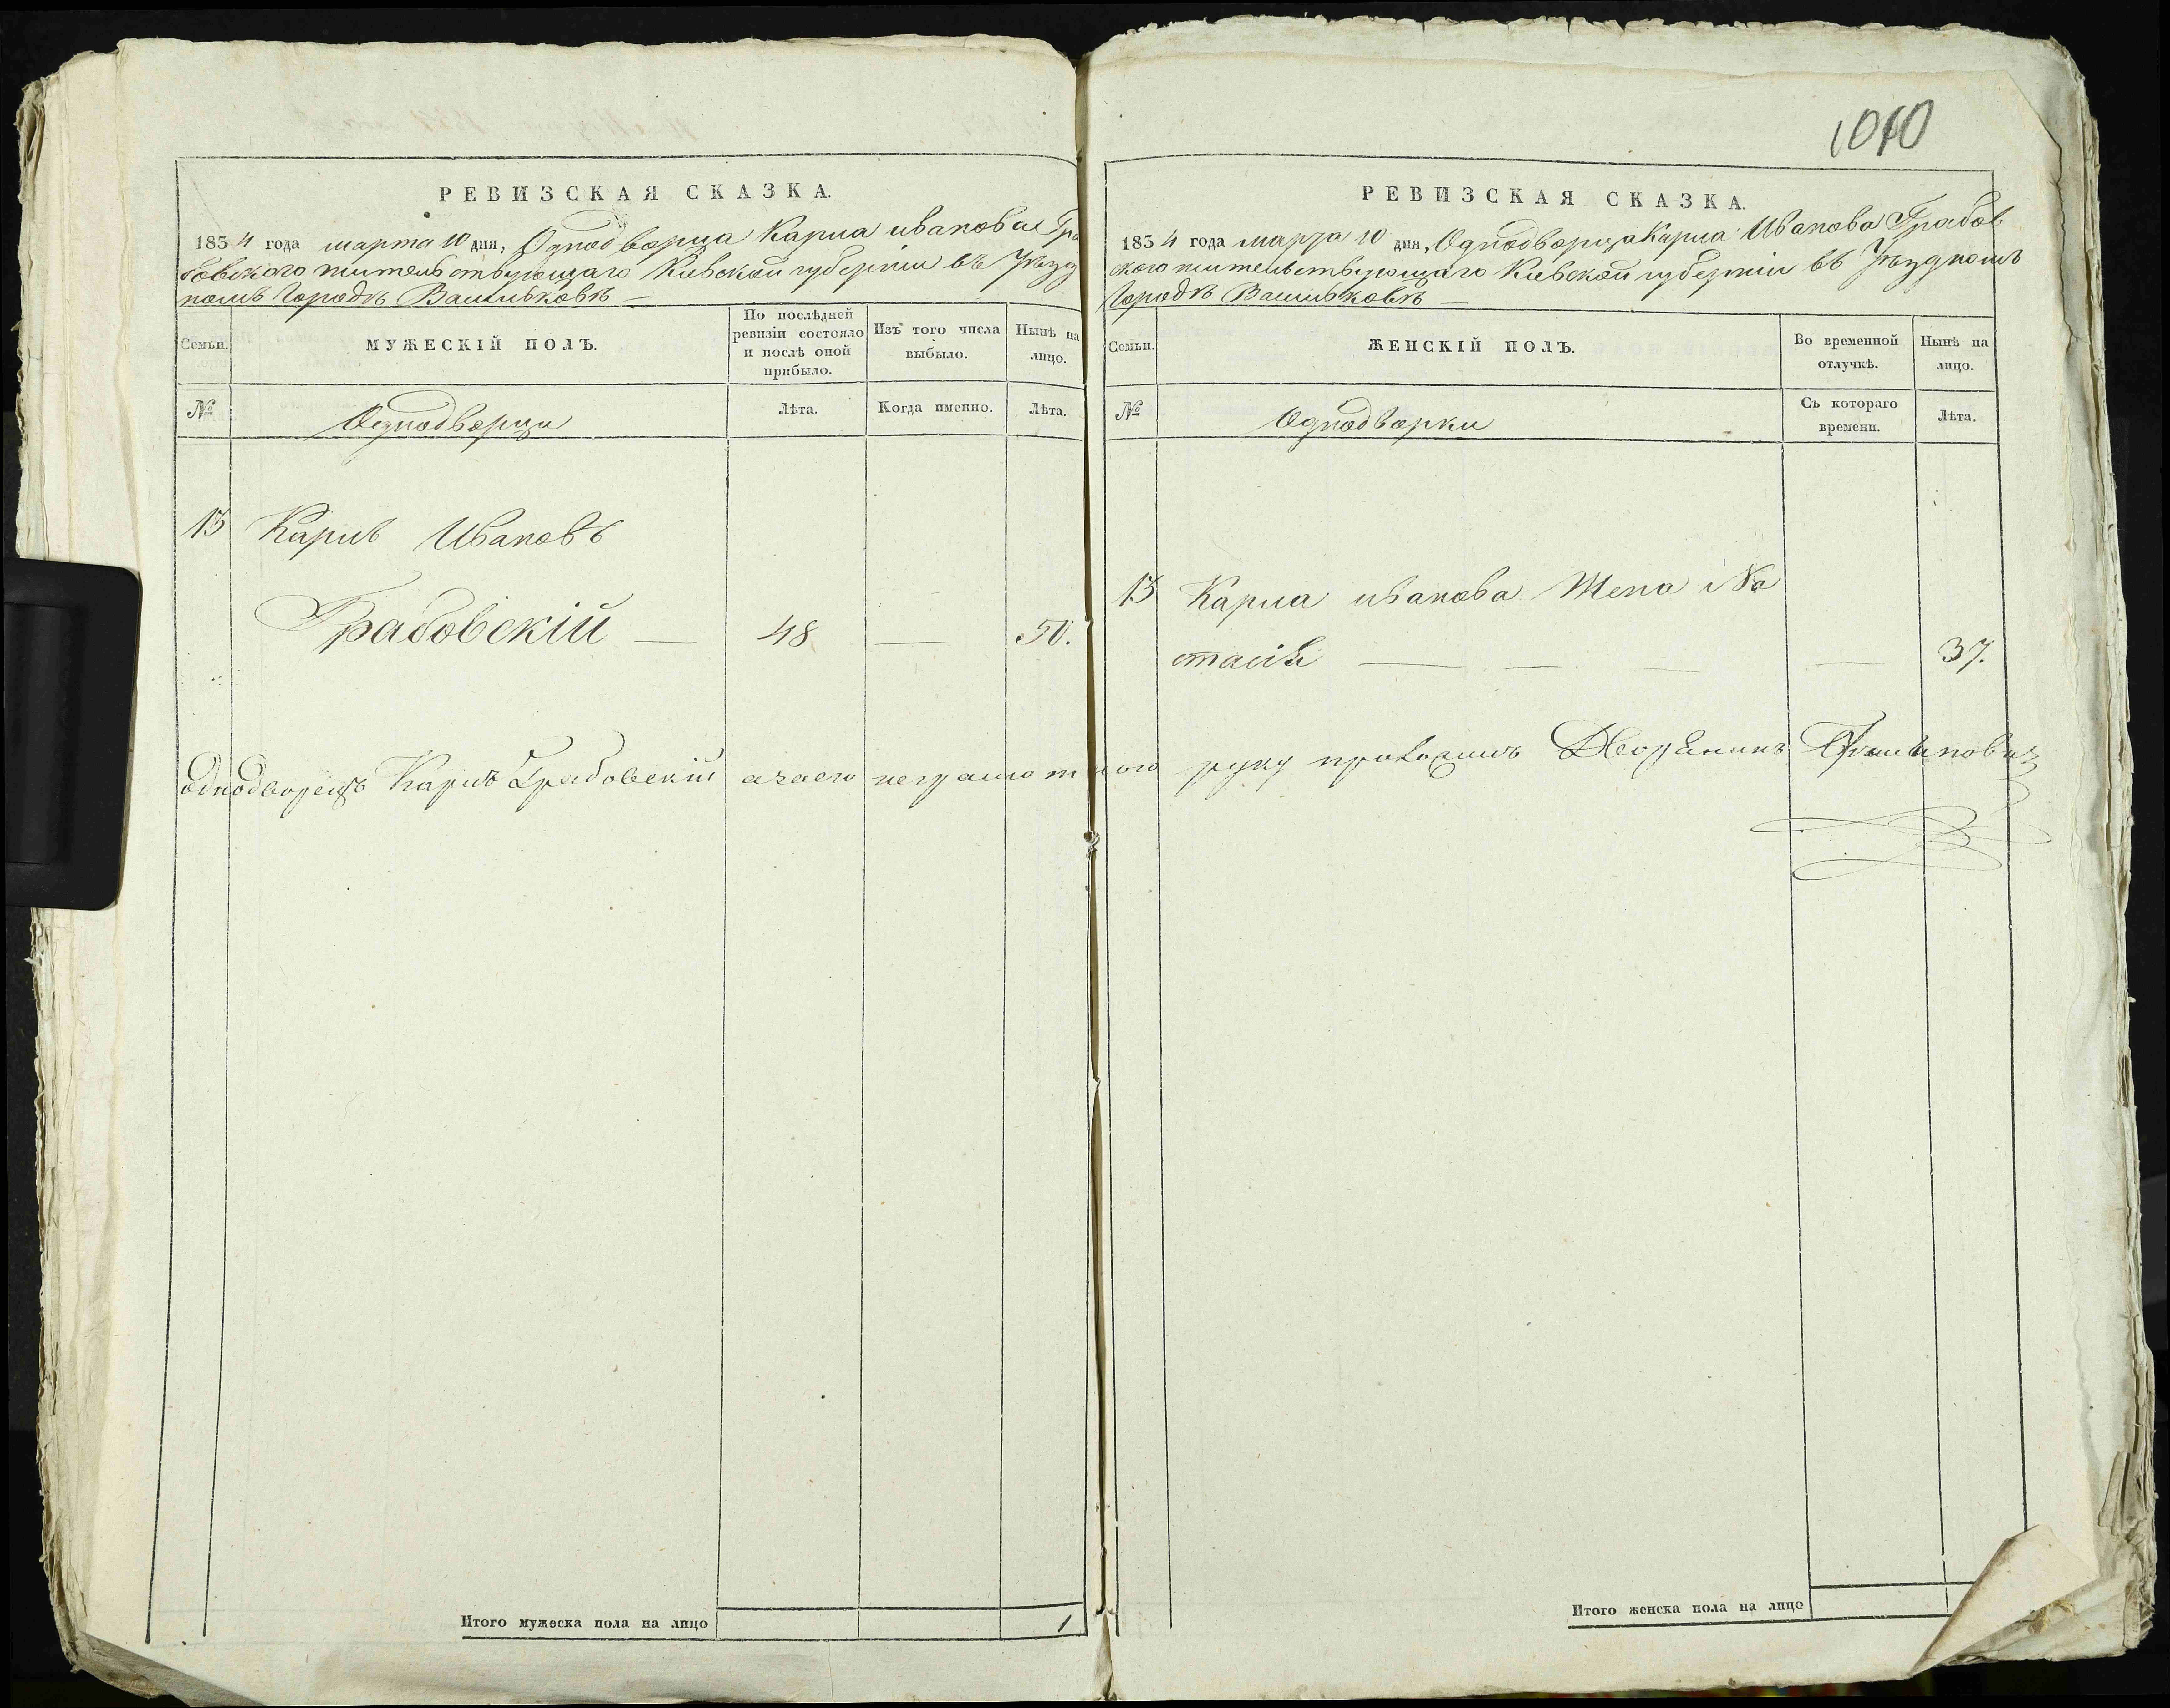 РЕВИЗСКАЯ СКАЗКА.
1834 года марта 10 дня, Однодворца Карла иванова Гра
бовскаго жительствующаго Киевской губерніи въ Уѣзд
номъ Городѣ Васильковѣ —
Семьи.
МУЖЕСКІЙ ПОЛЪ.
По послѣдней ревизіи состояло и послѣ оной прибыло.
Изъ того числа выбыло.
Нынѣ на лицо.
№
Однодворцы
Лѣта.
Когда именно.
Лѣта.
13 Карлъ Ивановъ
Грабовскій — 48 — 50.
Однодворецъ Карлъ Грабовскій а за его неграмотного руку приложилъ Дворянинъ
Итого мужеска пола на лицо 1
1010
РЕВИЗСКАЯ СКАЗКА.
1834 года марта 10 дня, Однодворца Карла Иванова Грабов
ского жительствующаго Киевской губерніи въ Уѣздномъ
Городѣ Васильковѣ —
Семьи.
ЖЕНСКІЙ ПОЛЪ.
Во временной отлучкѣ.
Нынѣ на лицо.
№
Однодворки
Съ котораго времени.
Лѣта.
13 Карла иванова Жена На
стасія — — — — 37.
Итого женска пола на лицо